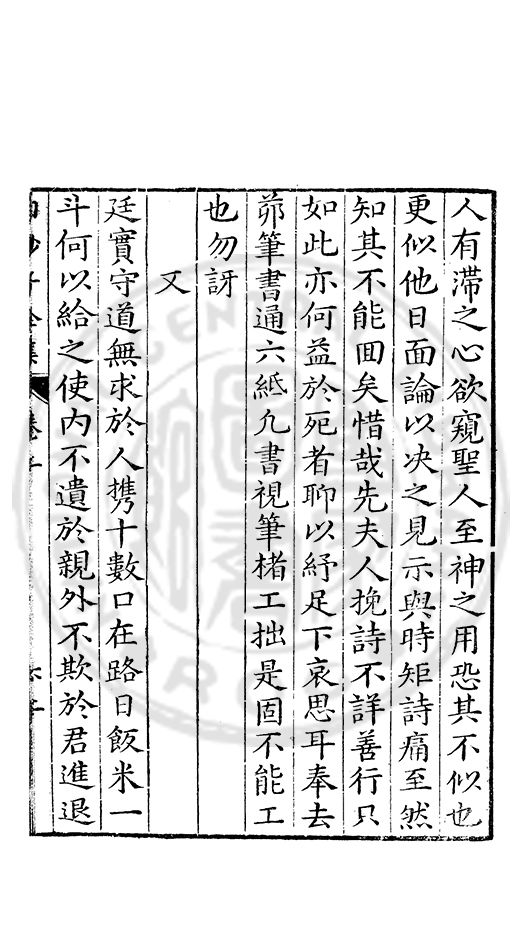 人有滞之心欲窺聖人至神之用恐其不似也
更似他日面論以决之見示與時矩詩痛至然
知其不能囬矣惜哉先夫人挽詩不詳善行只
如此亦何益於死者聊以紓足下哀思耳奉去
茆筆書通六紙凢書視筆楮工拙是固不能工
也勿訝
又
廷實守道無求於人携十數口在路日飯米一
斗何以給之使内不遺於親外不欺於君進退
白沙子全集 卷之